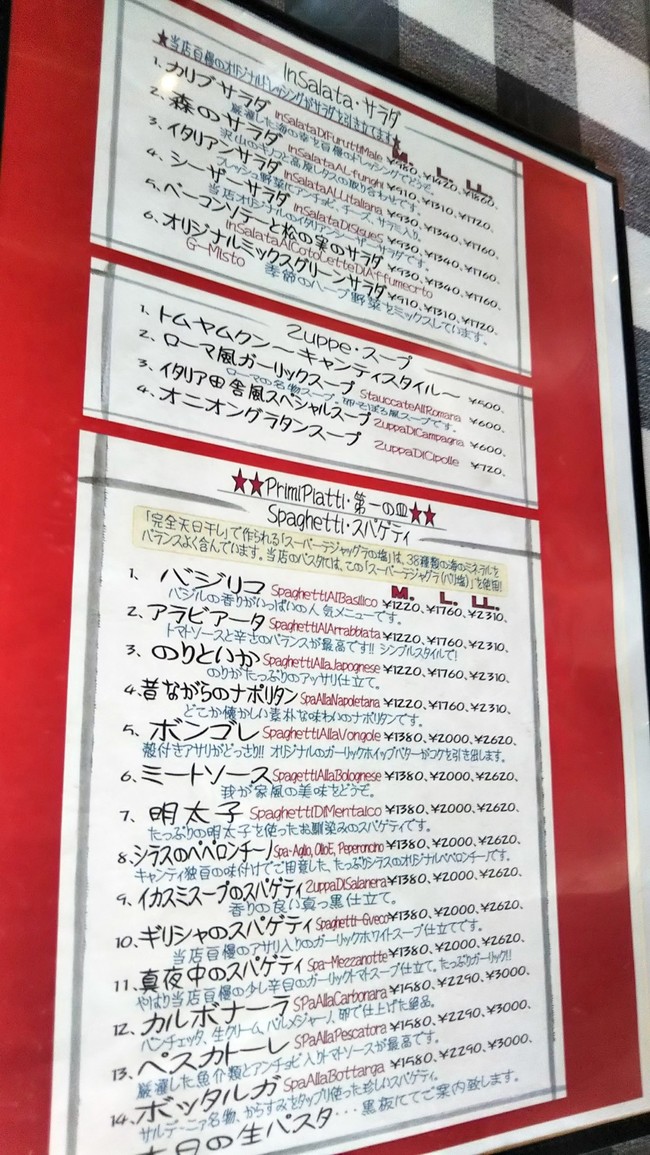 InSalata・サラダ
★当店自慢のオリジナルドレッシングがサラダを引き立てます★
M. L. LL.
1. カリブサラダ InSalataDiFuruttiMale ¥980、¥1420、¥1860、
厳選した海の幸を自慢のドレッシングでどうぞ。
2. 森のサラダ InSalataALfunghi ¥910、¥1310、¥1720、
沢山のキノコと高原レタスの取り合わせです。
3. イタリアンサラダ InSalataALLitaliana ¥930、¥1340、¥1760、
フレッシュ野菜にアンチョビ、チーズ、サラミ入り。
4. シーザーサラダ InSalataDiSigueS ¥930、¥1340、¥1760、
当店オリジナルのイタリアンシーザーサラダです。
5. ベーコンソテーと松の実のサラダ ¥930、¥1340、¥1760、
InSalataAlCotoLetteDiAffumecrto
6. オリジナルミックスグリーンサラダ ¥910、¥1310、¥1720、
G-Misto 季節のハーブ野菜をミックスしています。
Zuppe・スープ
1. トムヤムクン〜キャンティスタイル〜 ¥500、
2. ローマ風ガーリックスープ StauccateAllRomana ¥600、
ローマの名物スープ。卵そぼろ風スープです。
3. イタリア田舎風スペシャルスープ ZuppaDiCampagna ¥600、
4. オニオングラタンスープ ZuppaDiCipolle ¥720、
★★PrimiPiatti・第一の皿★★
Spaghetti・スパゲティ
「完全天日干し」で作られる「スーパーテジャクラの塩」は、38種類の海のミネラルを
バランスよく含んでいます。当店のパスタでは、この「スーパーテジャグラ(バリ塩)」を使用!
M. L. LL.
1. バジリコ SpaghettiAlBasilico ¥1220、¥1760、¥2310、
バジルの香りがいっぱいの人気メニューです。
2. アラビアータ SpaghettiAlArrabbiata ¥1220、¥1760、¥2310、
トマトソースと辛さのバランスが最高です!! シンプルスタイルで!
3. のりといか SpaghettiAllaJapognese ¥1220、¥1760、¥2310、
のりがたっぷりのアッサリ仕立て。
4. 昔ながらのナポリタン SpaAllaNapoletana ¥1220、¥1760、¥2310、
どこか懐かしい素朴な味わいのナポリタンです。
5. ボンゴレ SpaghettiAllaVongole ¥1380、¥2000、¥2620、
殻付きアサリがどっさり!! オリジナルのガーリックホイップバターがコクを引き出します。
6. ミートソース SpagettiAllaBolognese ¥1380、¥2000、¥2620、
我が家風の美味をどうぞ。
7. 明太子 SpaghettiDiMentaico ¥1380、¥2000、¥2620、
たっぷりの明太子を使ったお馴染みのスパゲティです。
8. シラスのペペロンチーノ Spa-Aglio, OlioE, Peperoncino ¥1380、¥2000、¥2620、
キャンティ独自の味付けでご用意した、たっぷりシラスのオリジナルペペロンチーノです。
9. イカスミスープのスパゲティ ZuppaDiSalanera ¥1380、¥2000、¥2620、
香りの良い真っ黒仕立て。
10. ギリシャのスパゲティ Spaghetti-Gveco ¥1380、¥2000、¥2620、
当店自慢のアサリ入りのガーリックホワイトスープ仕立てです。
11. 真夜中のスパゲティ Spa-Mezzanotte ¥1380、¥2000、¥2620、
やはり当店自慢の少し辛目のガーリックトマトスープ仕立て。たっぷりガーリック!!
12. カルボナーラ SPaAllaCarbonara ¥1580、¥2290、¥3000、
パンチェッタ、生クリーム、パルメジャーノ、卵で仕上げた絶品。
13. ペスカトーレ SPaAllaPescatora ¥1580、¥2290、¥3000、
厳選した魚介類とアンチョビ入りトマトソースが最高です。
14. ボッタルガ SpaAllaBottarga ¥1580、¥2290、¥3000、
サルデーニァ名物、からすみをタップリ使った珍しいスパゲティ。
本日の生パスタ・・・黒板にてご案内致します。